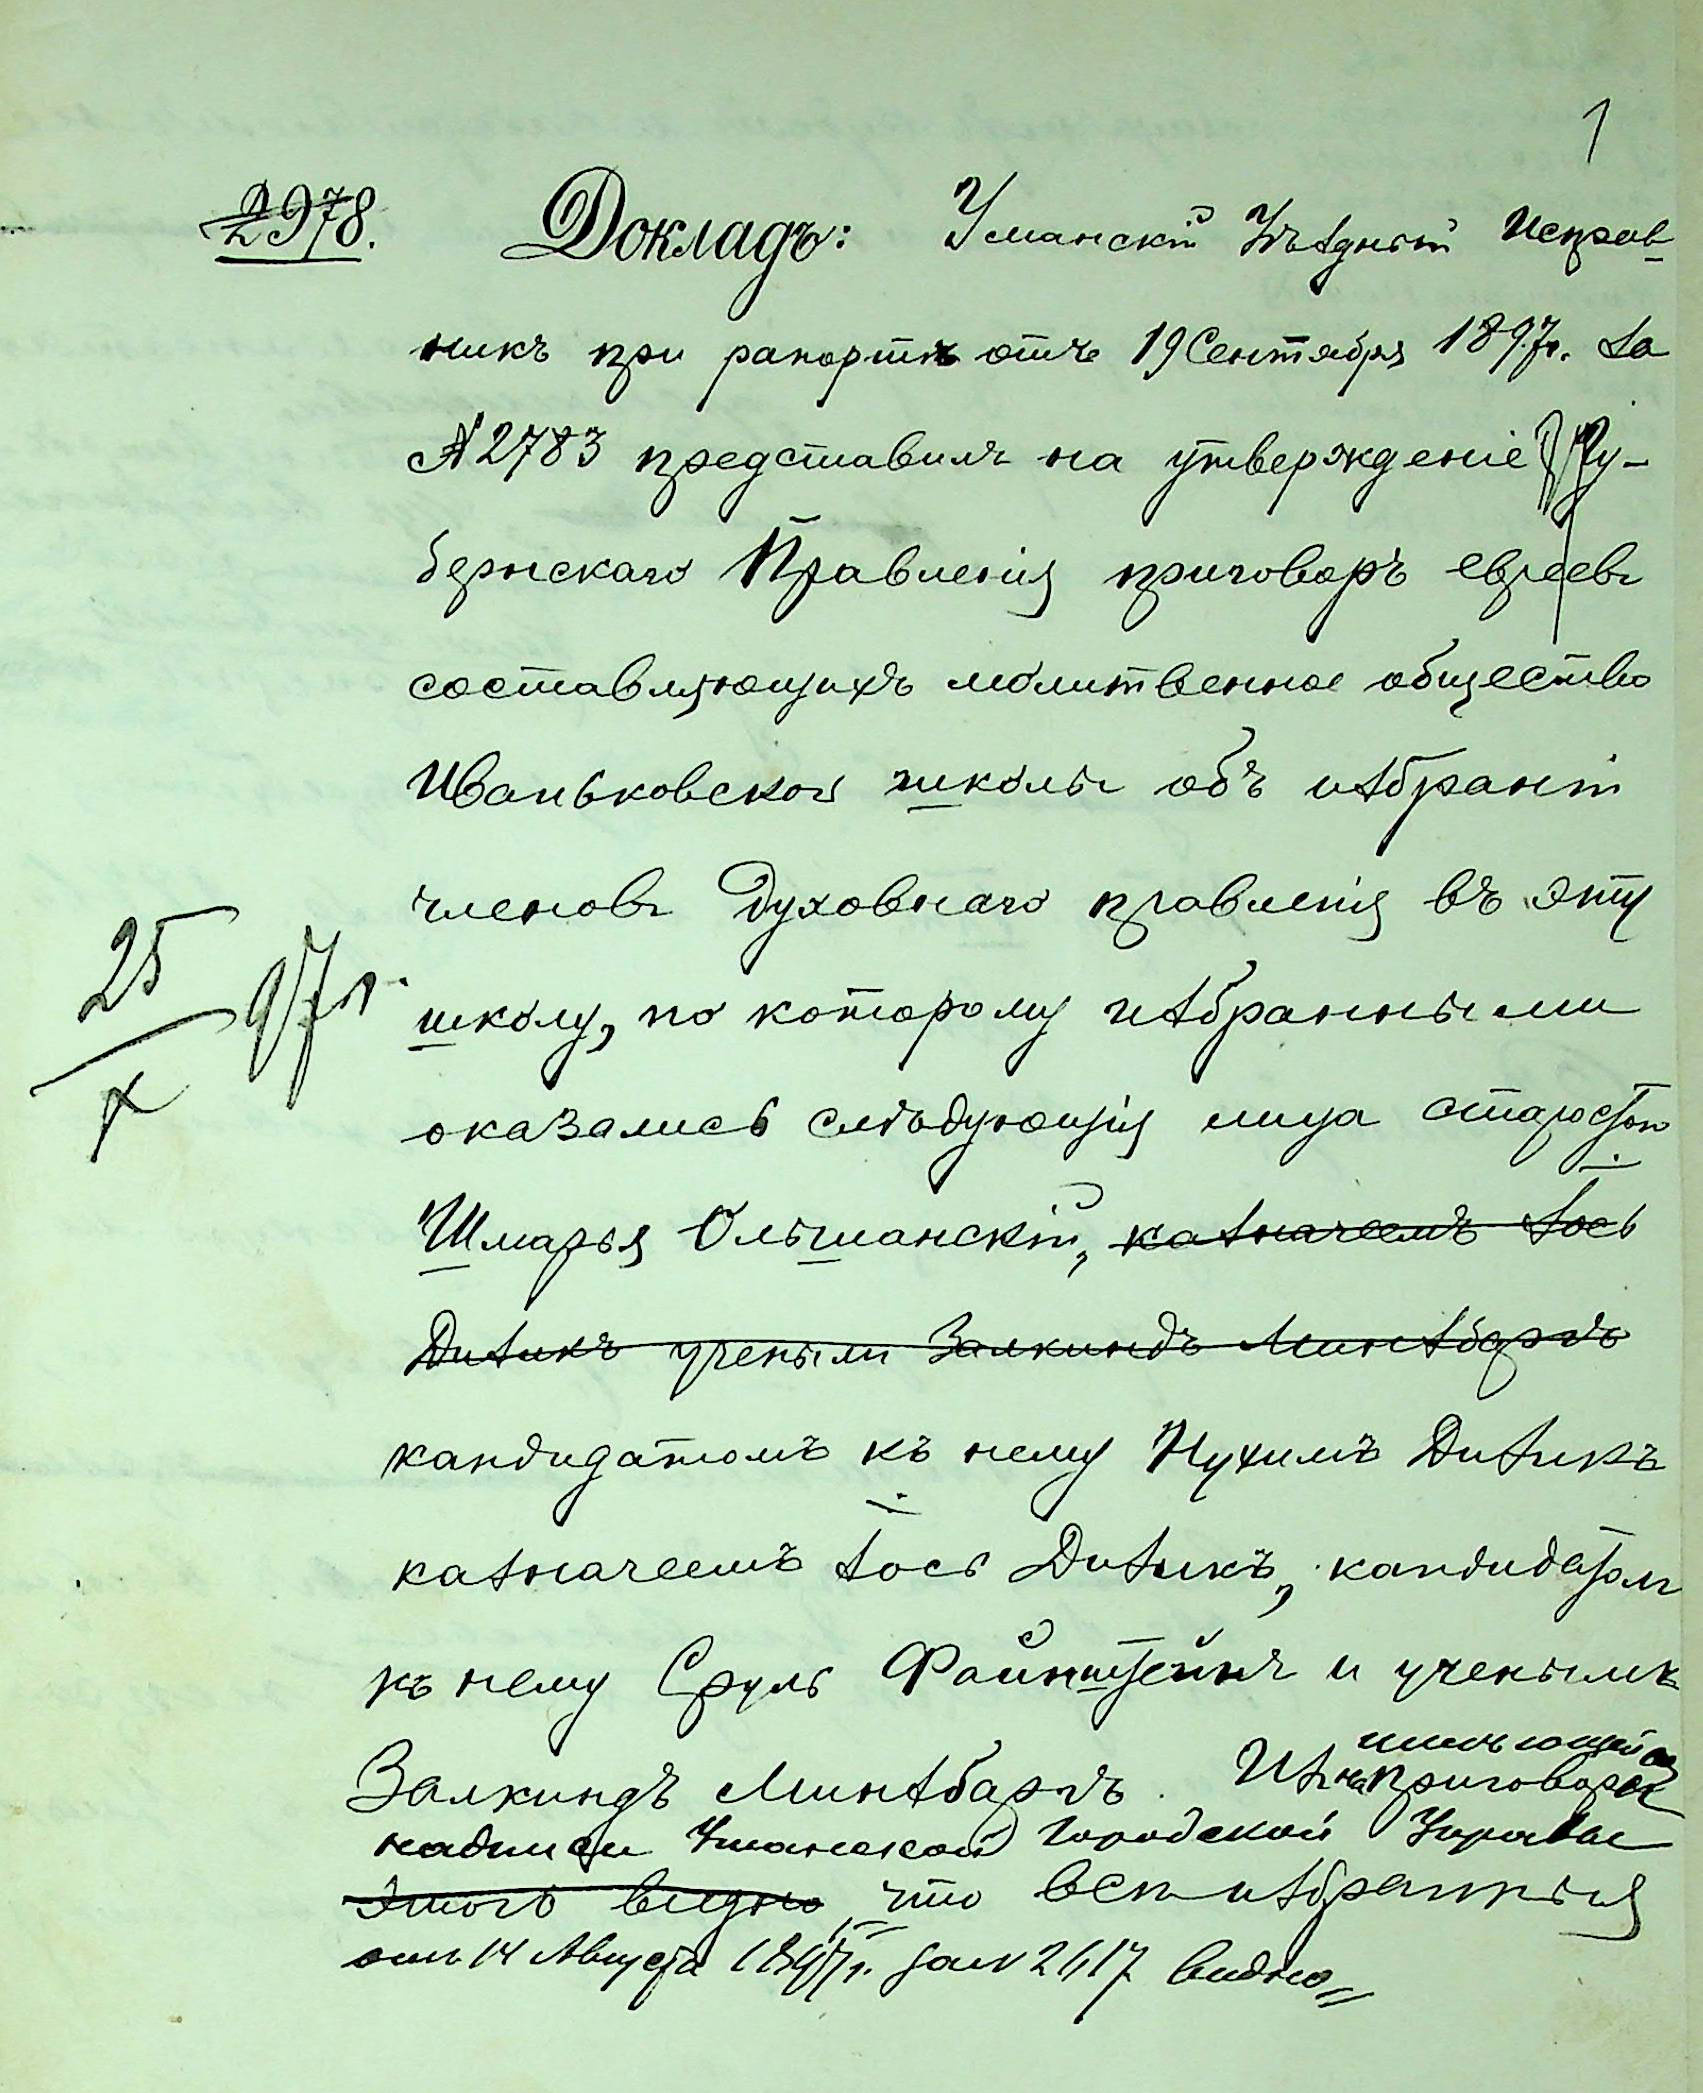 1
2978. Докладъ: Уманскій Уѣздный Исправ-
никъ при рапортѣ отъ 19 Сентября 1897 г. за
№ 2783 представилъ на утвержденіе Гу-
бернскаго Правленія приговоръ евреевъ
составляющихъ молитвенное общество
Иваньковской школы объ избраніи
членовъ Духовнаго правленія въ эту
школу, по которому избранными
25/X 97 г.
оказались слѣдующія лица старостою
Шмарья Ольшанскій, казначеемъ Іось
Дизикъ ученымъ Залкиндъ Минзбергъ
кандидатомъ къ нему Нухимъ Дизикъ
казначеемъ Іось Дизикъ, кандидатомъ
къ нему Сруль Файнштейнъ и ученымъ
Залкиндъ Минзбаргъ. Изъ имѣющейся на приговорѣ
надписи Уманской Городской Управы
этого видно что всѣ избранныя
отъ 14 Августа 1897 г. за № 2617 видно